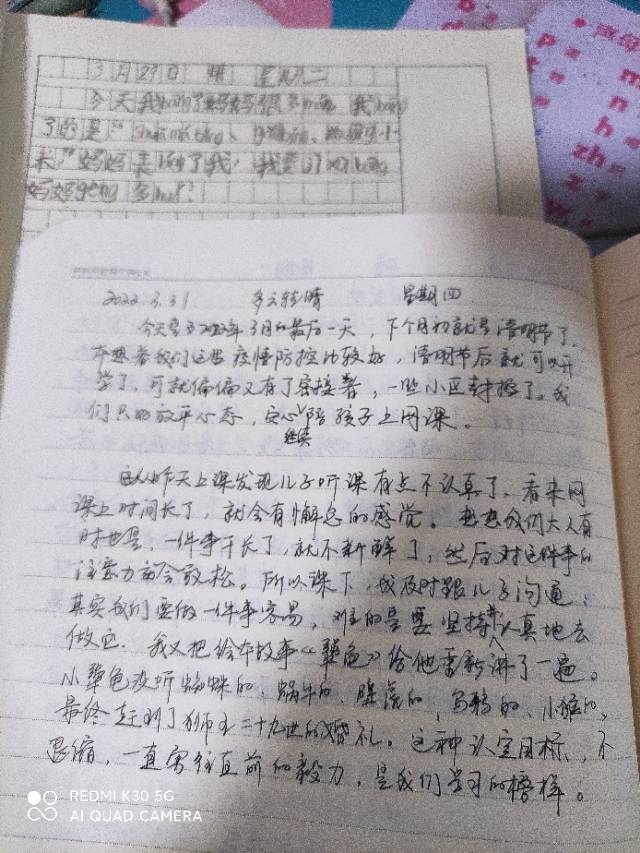 3月29日 晴 星期二
今天我 了妈妈很多
了的是"
妈妈 了我,我要
妈妈
2022.3.31 多云转晴 星期四
今天是2022年3月的最后一天,下个月初就是清明节了。
本想着我们这些疫情防控比较好,清明节后就可以开
学了,可就偏偏又有了密接者,一些小区封控了。我
们只能放平心态,安心继续陪孩子上网课。
昨天上课发现儿子听课有点不认真了,看来网
课上时间长了,就会有懈怠的感觉。想想我们大人有
时也是,一件事干长了,就不新鲜了,然后对这件事的
注意力就会放松。所以课下,我及时跟儿子沟通:
其实我们要做一件事容易,难的是要坚持并认真地去
做它。我又把绘本故事《犟龟》给他重新讲了一遍。
小犟龟没听蜘蛛的、蜗牛的、壁虎的、乌鸦的、小猴的,
最终赶到了狮王二十九世的婚礼。这种认定目标,不
退缩,一直勇往直前的毅力,是我们学习的榜样。
REDMI K30 5G
AI QUAD CAMERA
zh